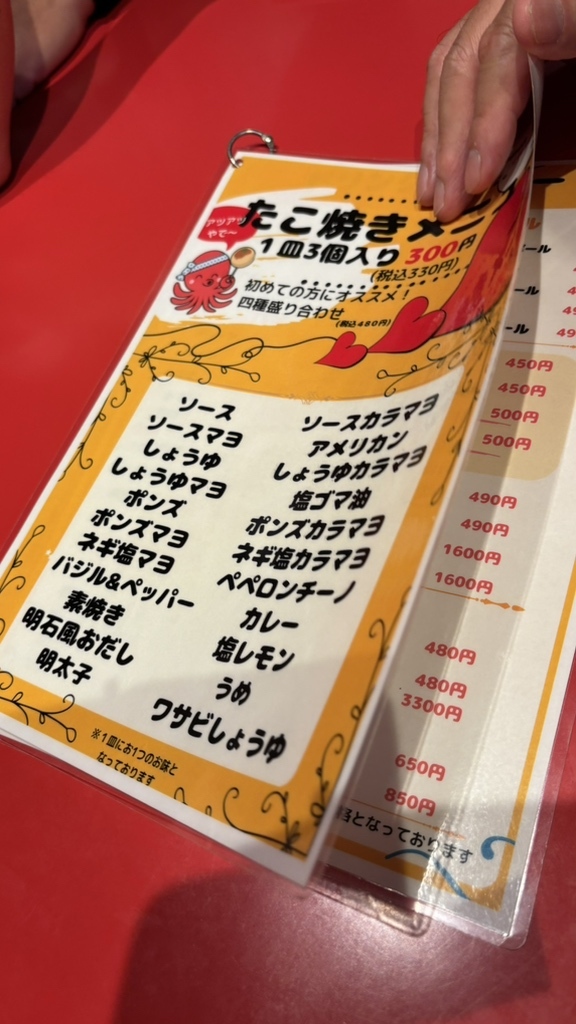 アツアツ
やで〜
たこ焼きメニ
1皿3個入り 300円
(税込330円)
初めての方にオススメ！
四種盛り合わせ
(税込480円)
ソース
ソースマヨ
しょうゆ
しょうゆマヨ
ポンズ
ポンズマヨ
ネギ塩マヨ
バジル&ペッパー
素焼き
明石風おだし
明太子
ソースカラマヨ
アメリカン
しょうゆカラマヨ
塩ゴマ油
ポンズカラマヨ
ネギ塩カラマヨ
ペペロンチーノ
カレー
塩レモン
うめ
ワサビしょうゆ
※1皿にお1つのお味と
なっております
ール
ール
450円
450円
500円
500円
490円
490円
1600円
1600円
480円
480円
3300円
650円
850円
となっております